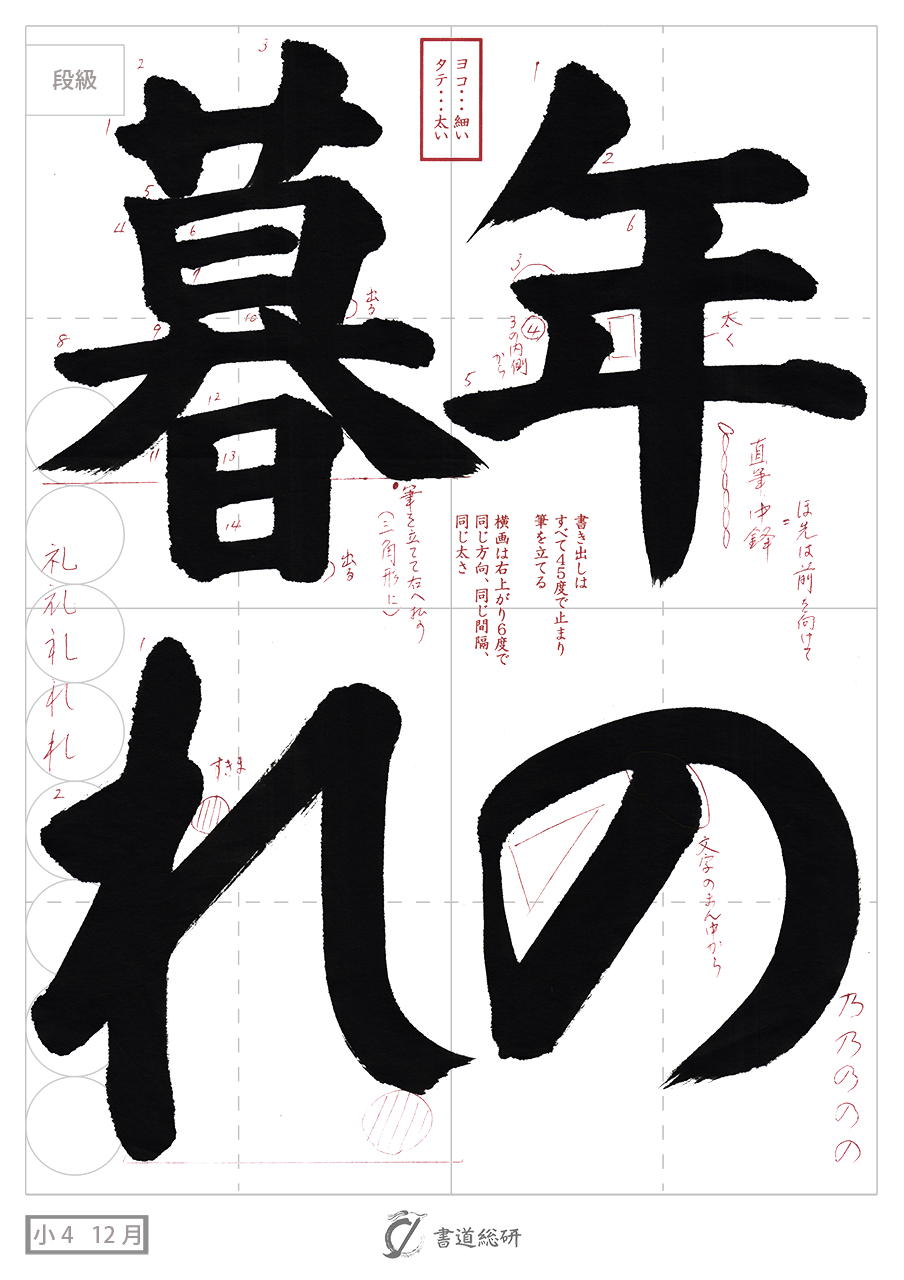 年の
暮れ
段級
ヨコ・・・細い
タテ・・・太い
1
2
3
④
5
6
3の内側
から
太く
直筆中鋒
ほ先は前を向けて
1
2
3
4
5
6
7
8
9
10
11
12
13
14
出る
出る
筆を立てて右へ払う
(三角形に)
書き出しは
すべて45度で止まり
筆を立てる
横画は右上がり6度で
同じ方向、同じ間隔、
同じ太さ
文字のまん中から
乃
乃
の
の
の
1
2
すきま
礼
礼
礼
れ
れ
小4 12月
書道総研